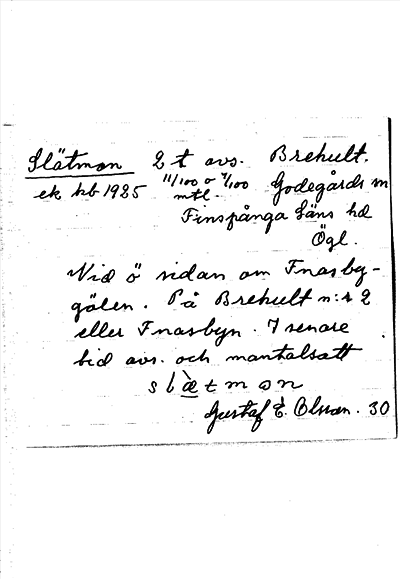 Slätmon 2 t avs. Brehult.
ek kb 1925 11/100 o 7/100 mtl. Godegårds sn
Finspånga läns hd
Ögl.
Vid ö sidan om Fnasby-
gölen. På Brehult n:r 2
eller Fnasbyn. I senare
tid avs. och mantalsatt
slæ̀tmon
Gustaf E. Olsson. 30